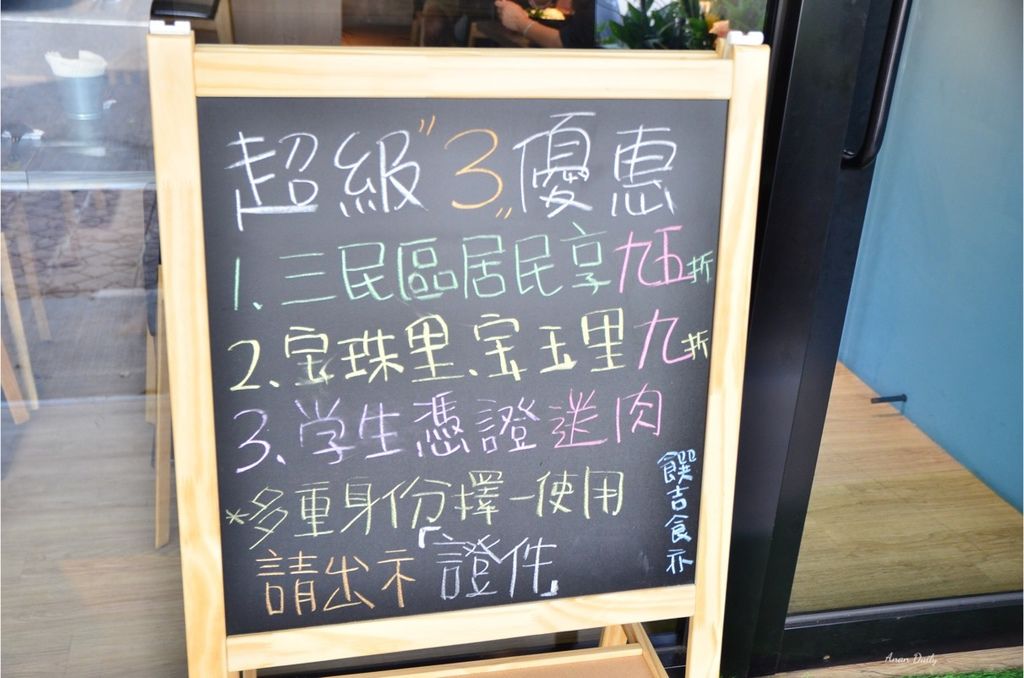 超級"3"優惠
1、三民區居民享九五折
2、宝珠里、宝玉里九折
3、学生憑證送肉
*多重身份擇一使用
請出示「證件」
饌吉食示
Anan Daily